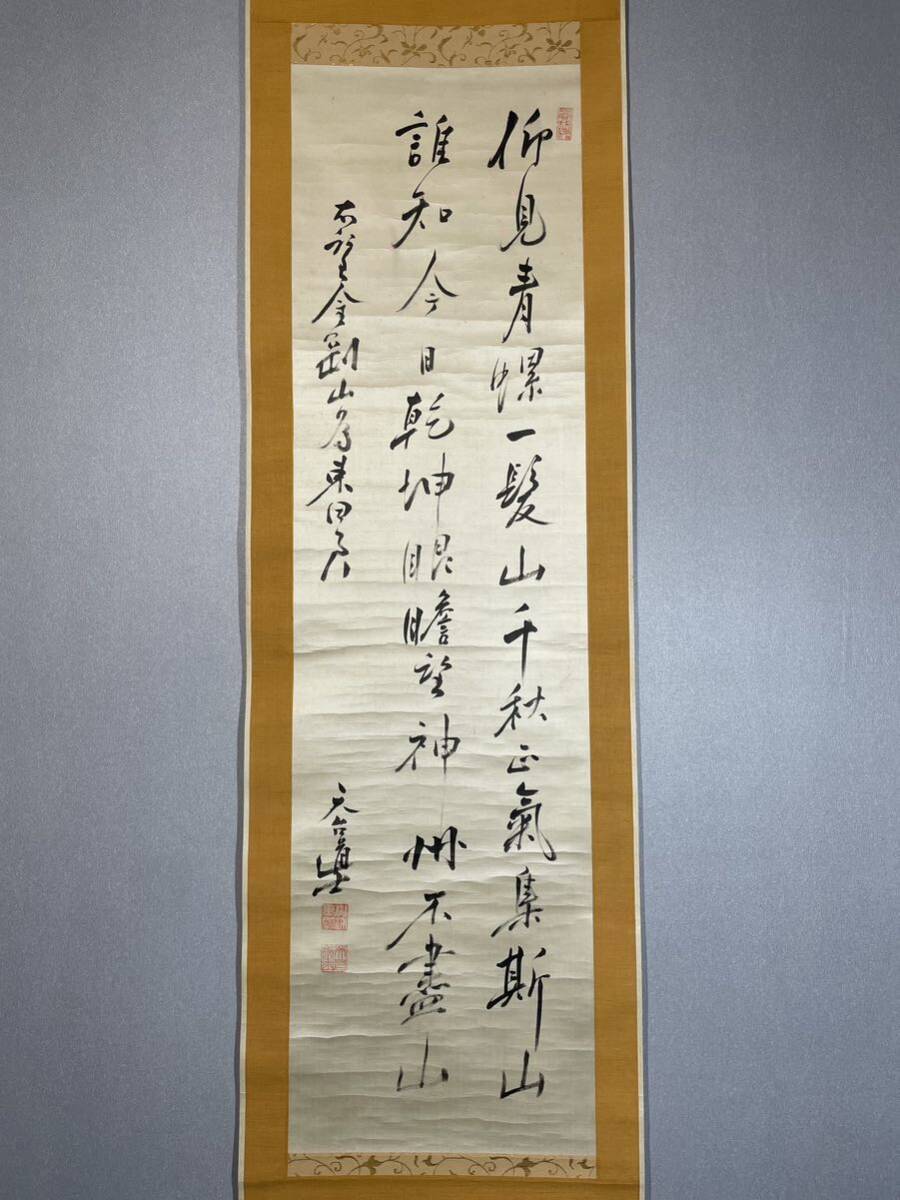 仰見青螺一髮山千秋正氣集斯山
誰知今日乾坤眼瞻望神州不盡山
右望金剛山為東田君
天台道士